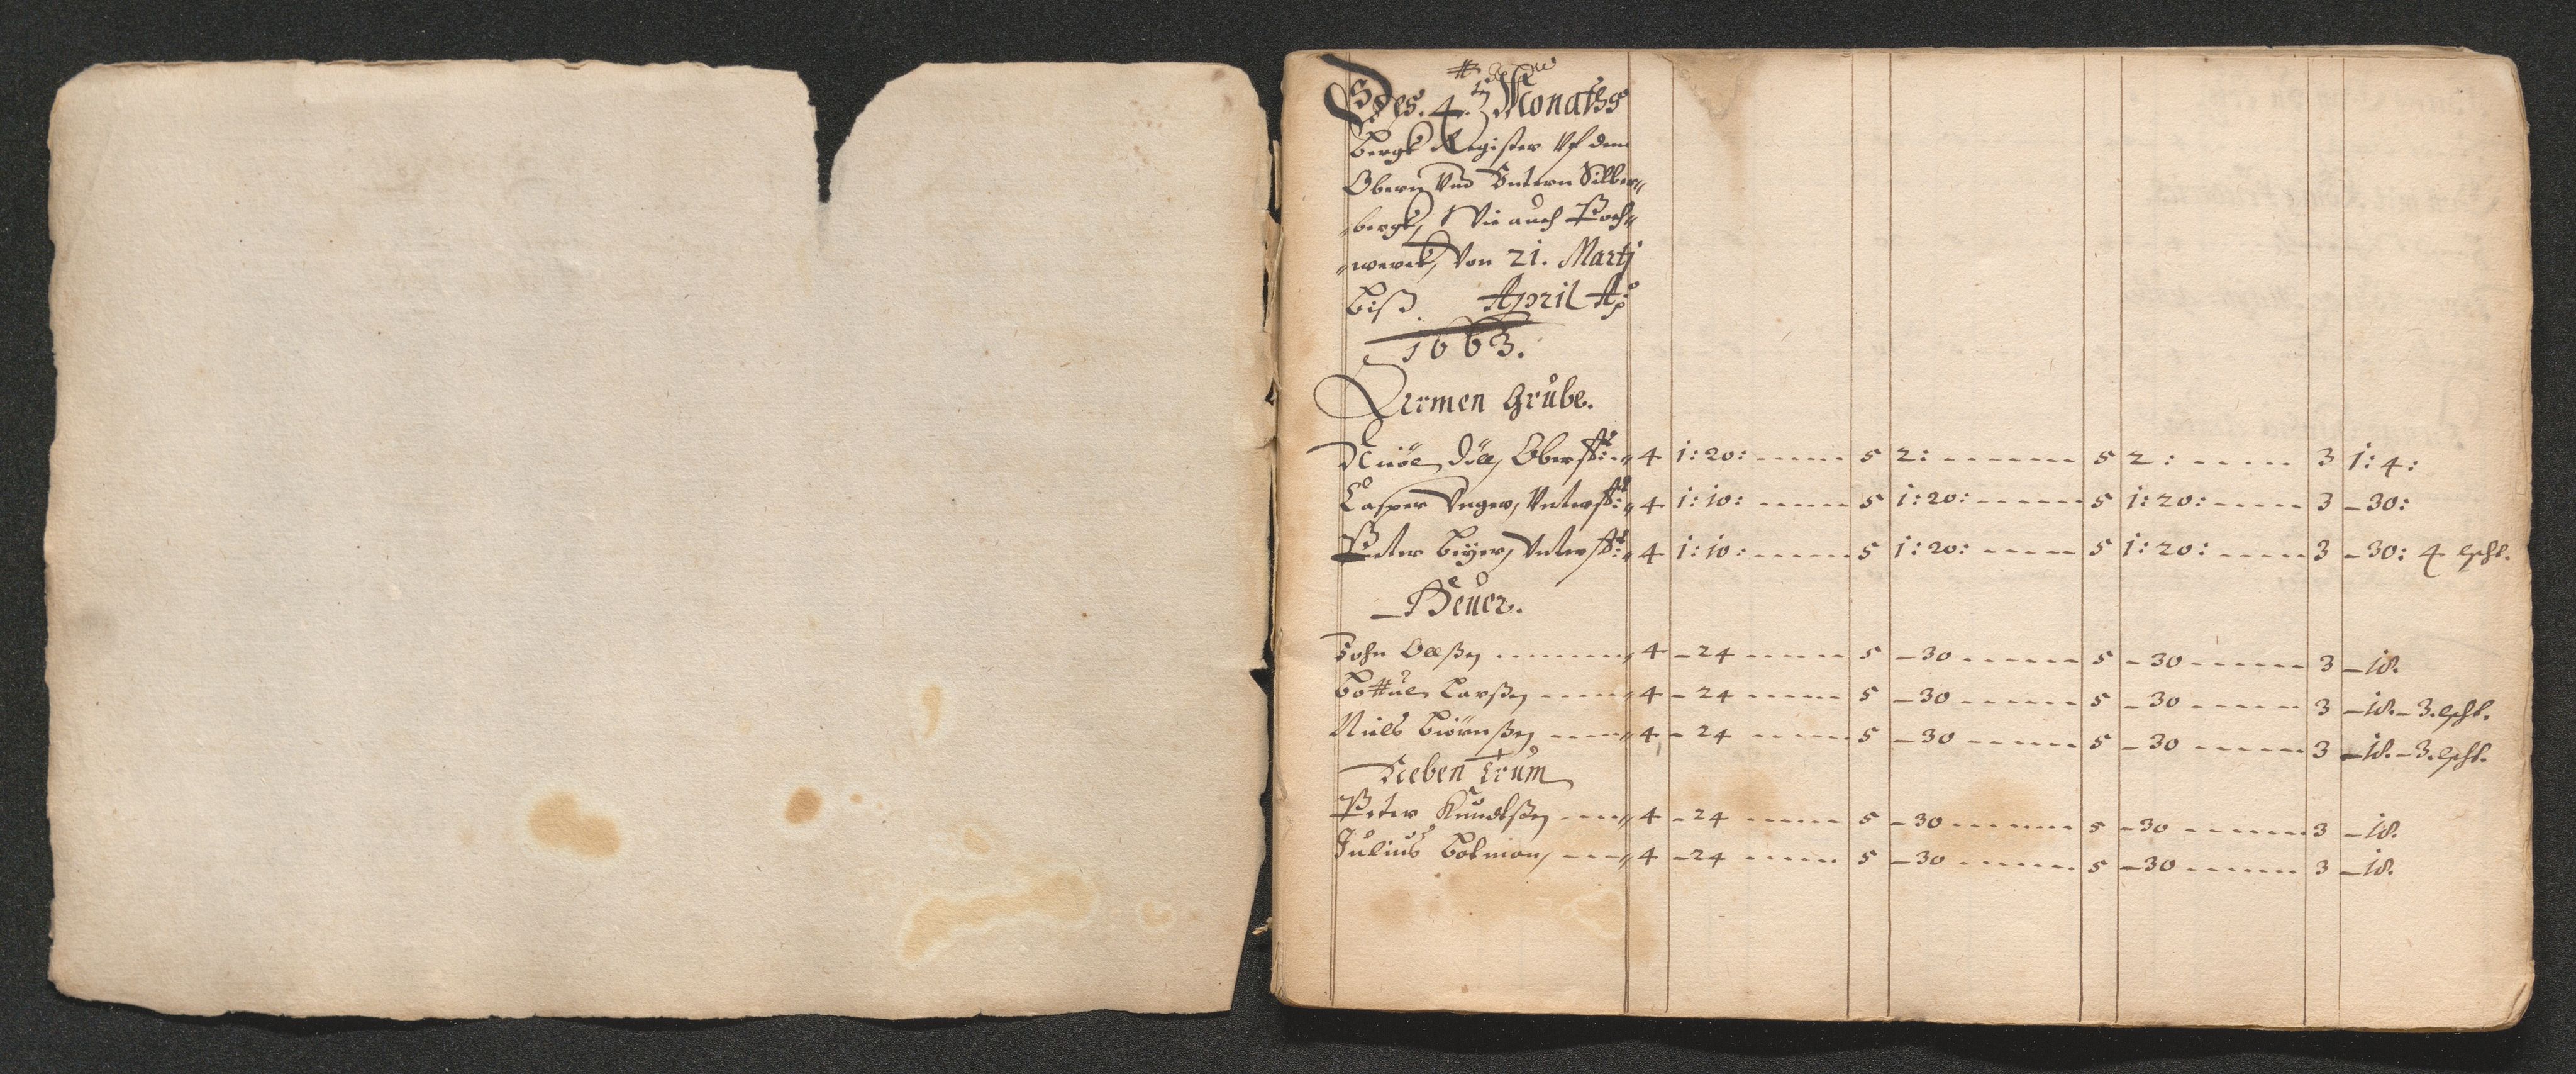 Des. 4.ten Monathß
Bergk Register Uf dem
Obern Und Untern Silber„
„bergk, Wie auch Poch„
„werck, Von 21. Martj
biß. April Aō
1663.
Armen Grube.
Döll, Oberst: „ 4 1:20: 5 2: 5 2: 3 1:4:
Casper Unger, Unterst: „ 4 1:10: 5 1:20: 5 1:20: 3 – 30:
Peter Beÿer, Unterst: „ 4 1:10: 5 1:20: 5 1:20: 3 – 30: 4 lßht.
Heuer.
John Ollßen „ 4 – 24 5 – 30 5 – 30 3 – 18.
Bottul Larßen „ 4 – 24 5 – 30 5 – 30 3 – 18. – 3. lßht.
Niels Biörnßen „ 4 – 24 5 – 30 5 – 30 3 – 18. – 3. lßht.
Neben Trum
Peter Knudtßen „ 4 – 24 5 – 30 5 – 30 3 – 18.
Julius Bolman, „ 4 – 24 5 – 30 5 – 30 3 – 18.